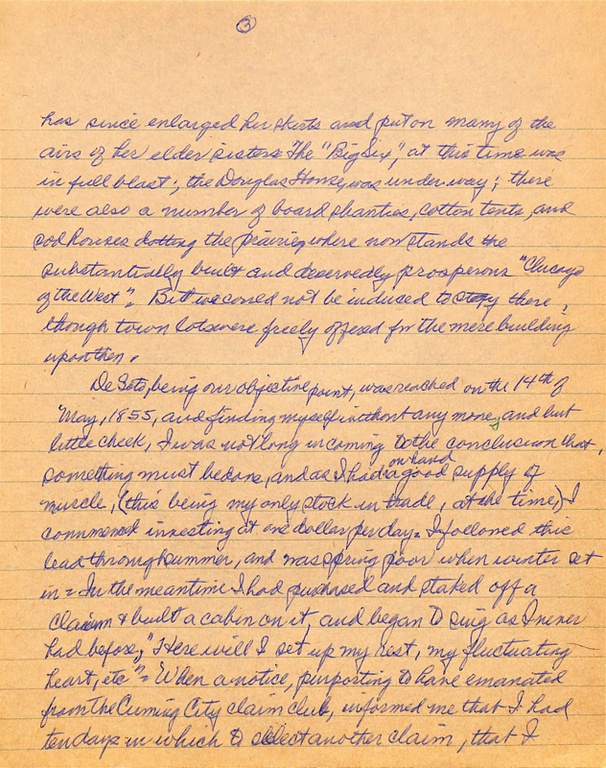 3
has since enlarged her skirts and put on many of the
airs of her elder sisters. The "Big Six", at this time was
in full blast; the Douglas House, was under way; there
were also a number of board shanties, cotton tents, and
sod houses dotting the prairie, where now stands the
substantially built and deservedly prosperous "Chicago
of the West". But we could not be induced to stay there,
though town lots were freely offered for the mere building
upon then.
De Soto, being our objective point, was reached on the 14th of
May, 1855, and finding myself without any money and but
little cheek, I was not long in coming to the conclusion that,
on hand
something must be done, and as I had a good supply of
muscle, (this being my only stock in trade, at the time,) I
commenced investing at one dollar per day. I followed this
lead through summer, and was spring poor when winter set
in = In the meantime I had purchased and staked off a
claim & built a cabin on it, and began to sing as I never
had before, "Here will I set up my rest, my fluctuating
heart, etc" = When a notice, purporting to have emanated
from the Cuming City claim club, informed me that I had
ten days in which to select another claim, that I